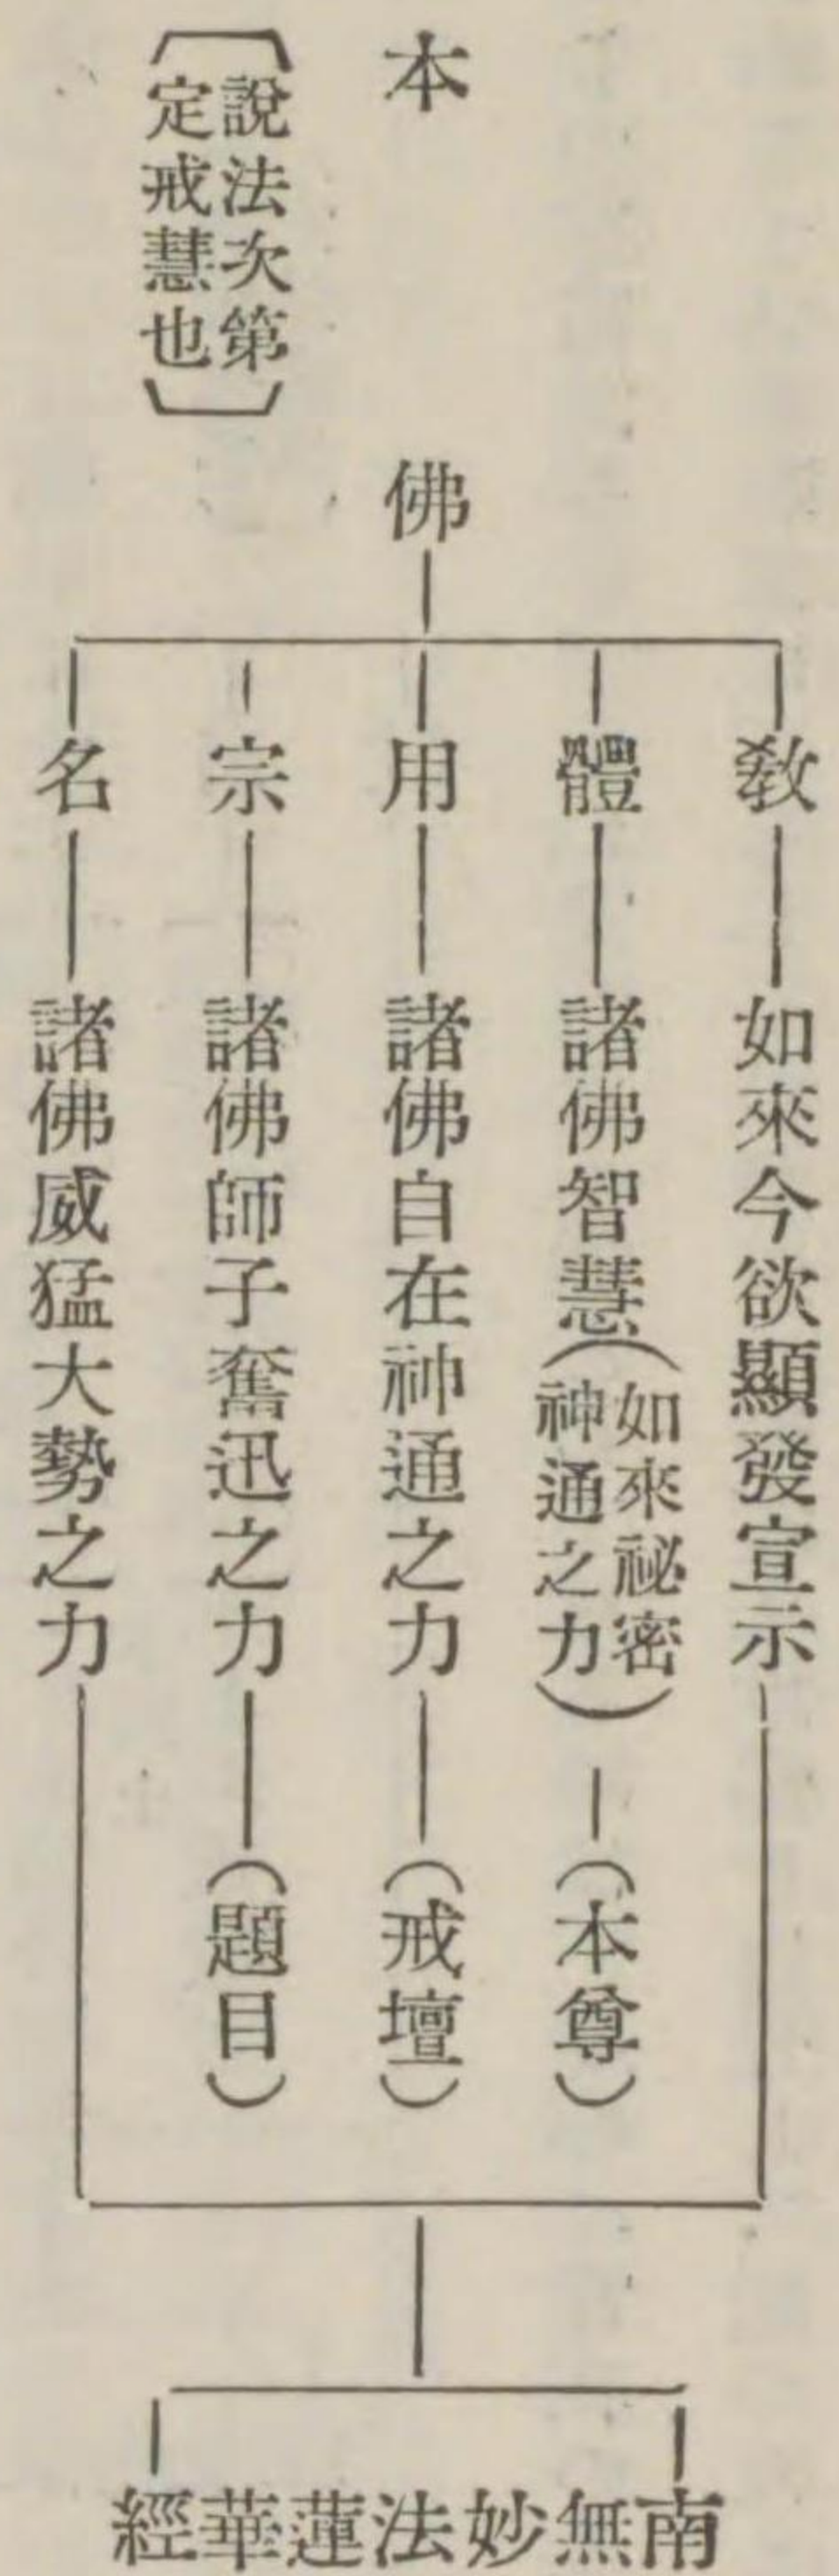 本佛
〔說法次第
定戒慧也〕
敎
如來今欲顯發宣示
體
諸佛智慧(如來祕密
神通之力)
(本尊)
用
諸佛自在神通之力
(戒壇)
宗
諸佛師子奮迅之力
(題目)
名
諸佛威猛大勢之力
南無妙法蓮華經